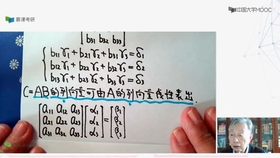 慕课考研
中国大学MOOC
b31 b32 b33
b11γ1 + b21γ2 + b31γ3 = δ1
b12γ1 + b22γ2 + b32γ3 = δ2
b13γ1 + b23γ2 + b33γ3 = δ3
C=AB的列向量可由A的列向量线性表出.
a11 a12 a13 α1 β1
a21 a22 a23 α2 = β2
a31 a32 a33 α3 β3